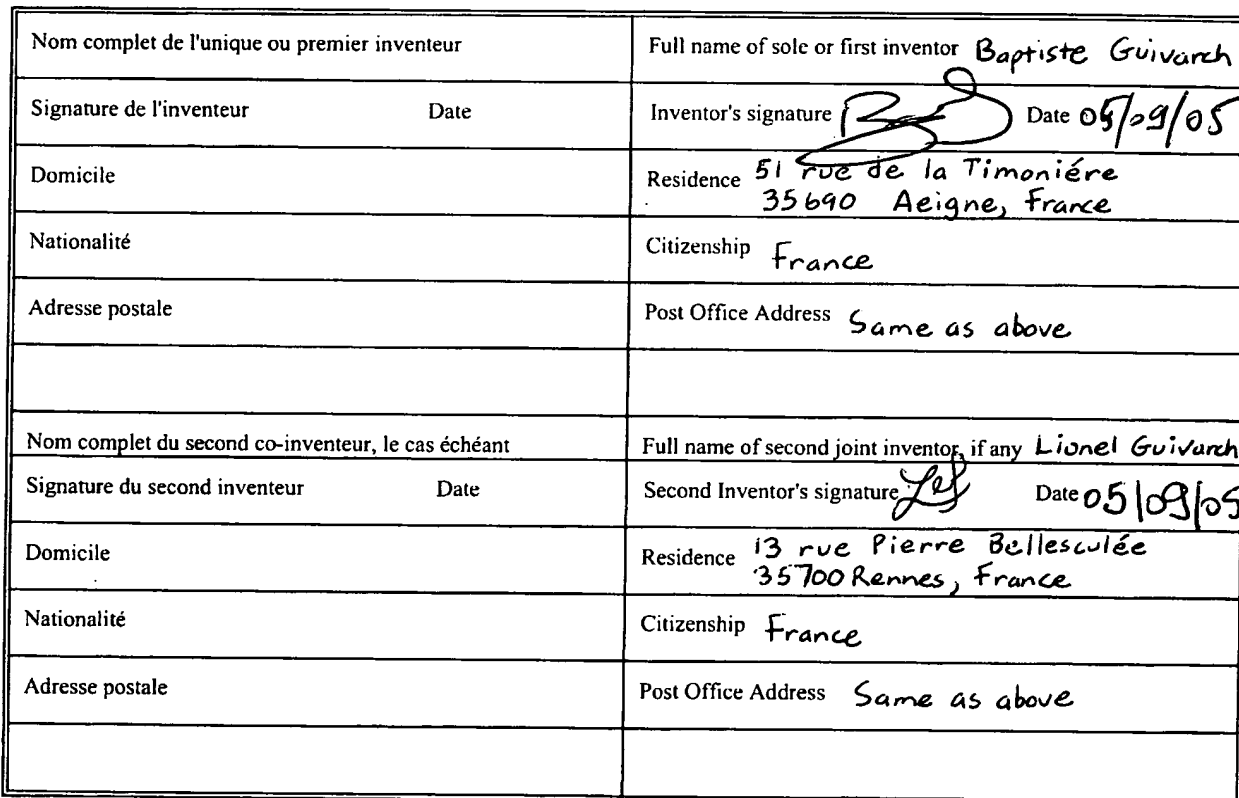 Nom complet de l'unique ou premier inventeur
Full name of sole or first inventor Baptiste Guivarch
Signature de l'inventeur Date
Inventor's signature Date 05/09/05
Domicile
Residence 51 rue de la Timoniére
35690 Aeigne, France
Nationalité
Citizenship France
Adresse postale
Post Office Address Same as above
Nom complet du second co-inventeur, le cas échéant
Full name of second joint inventor, if any Lionel Guivarch
Signature du second inventeur Date
Second Inventor's signature Date 05/09/05
Domicile
Residence 13 rue Pierre Bellesculée
35700 Rennes, France
Nationalité
Citizenship France
Adresse postale
Post Office Address Same as above